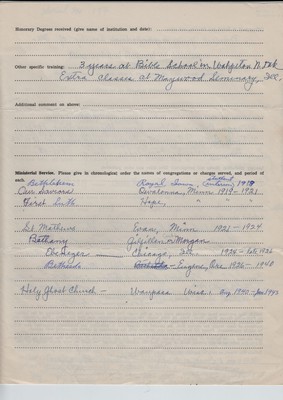 Honorary Degrees received (give name of institution and date):
Other specific training: 3 years at Bible School in Wahpeton N. Dak
Extra Classes at Maywood Seminary, Ill.
Additional comment on above:
Ministerial Service. Please give in chronological order the names of congregations or charges served, and period of
each.
Bethlehem Royal, Iowa, student 1919
Our Saviors Owatonna, Minn 1919-1921
First Luth. Hope, " "
St. Mathews Evan, Minn 1921-1924
Bethany Gilfillan-Morgan
Ebenezer Chicago, Ill. 1924-1926
Bethesda Eugene, Ore 1926-1940
Holy Ghost Church - Waupaca Wisc. Aug 1940-Jan 1943